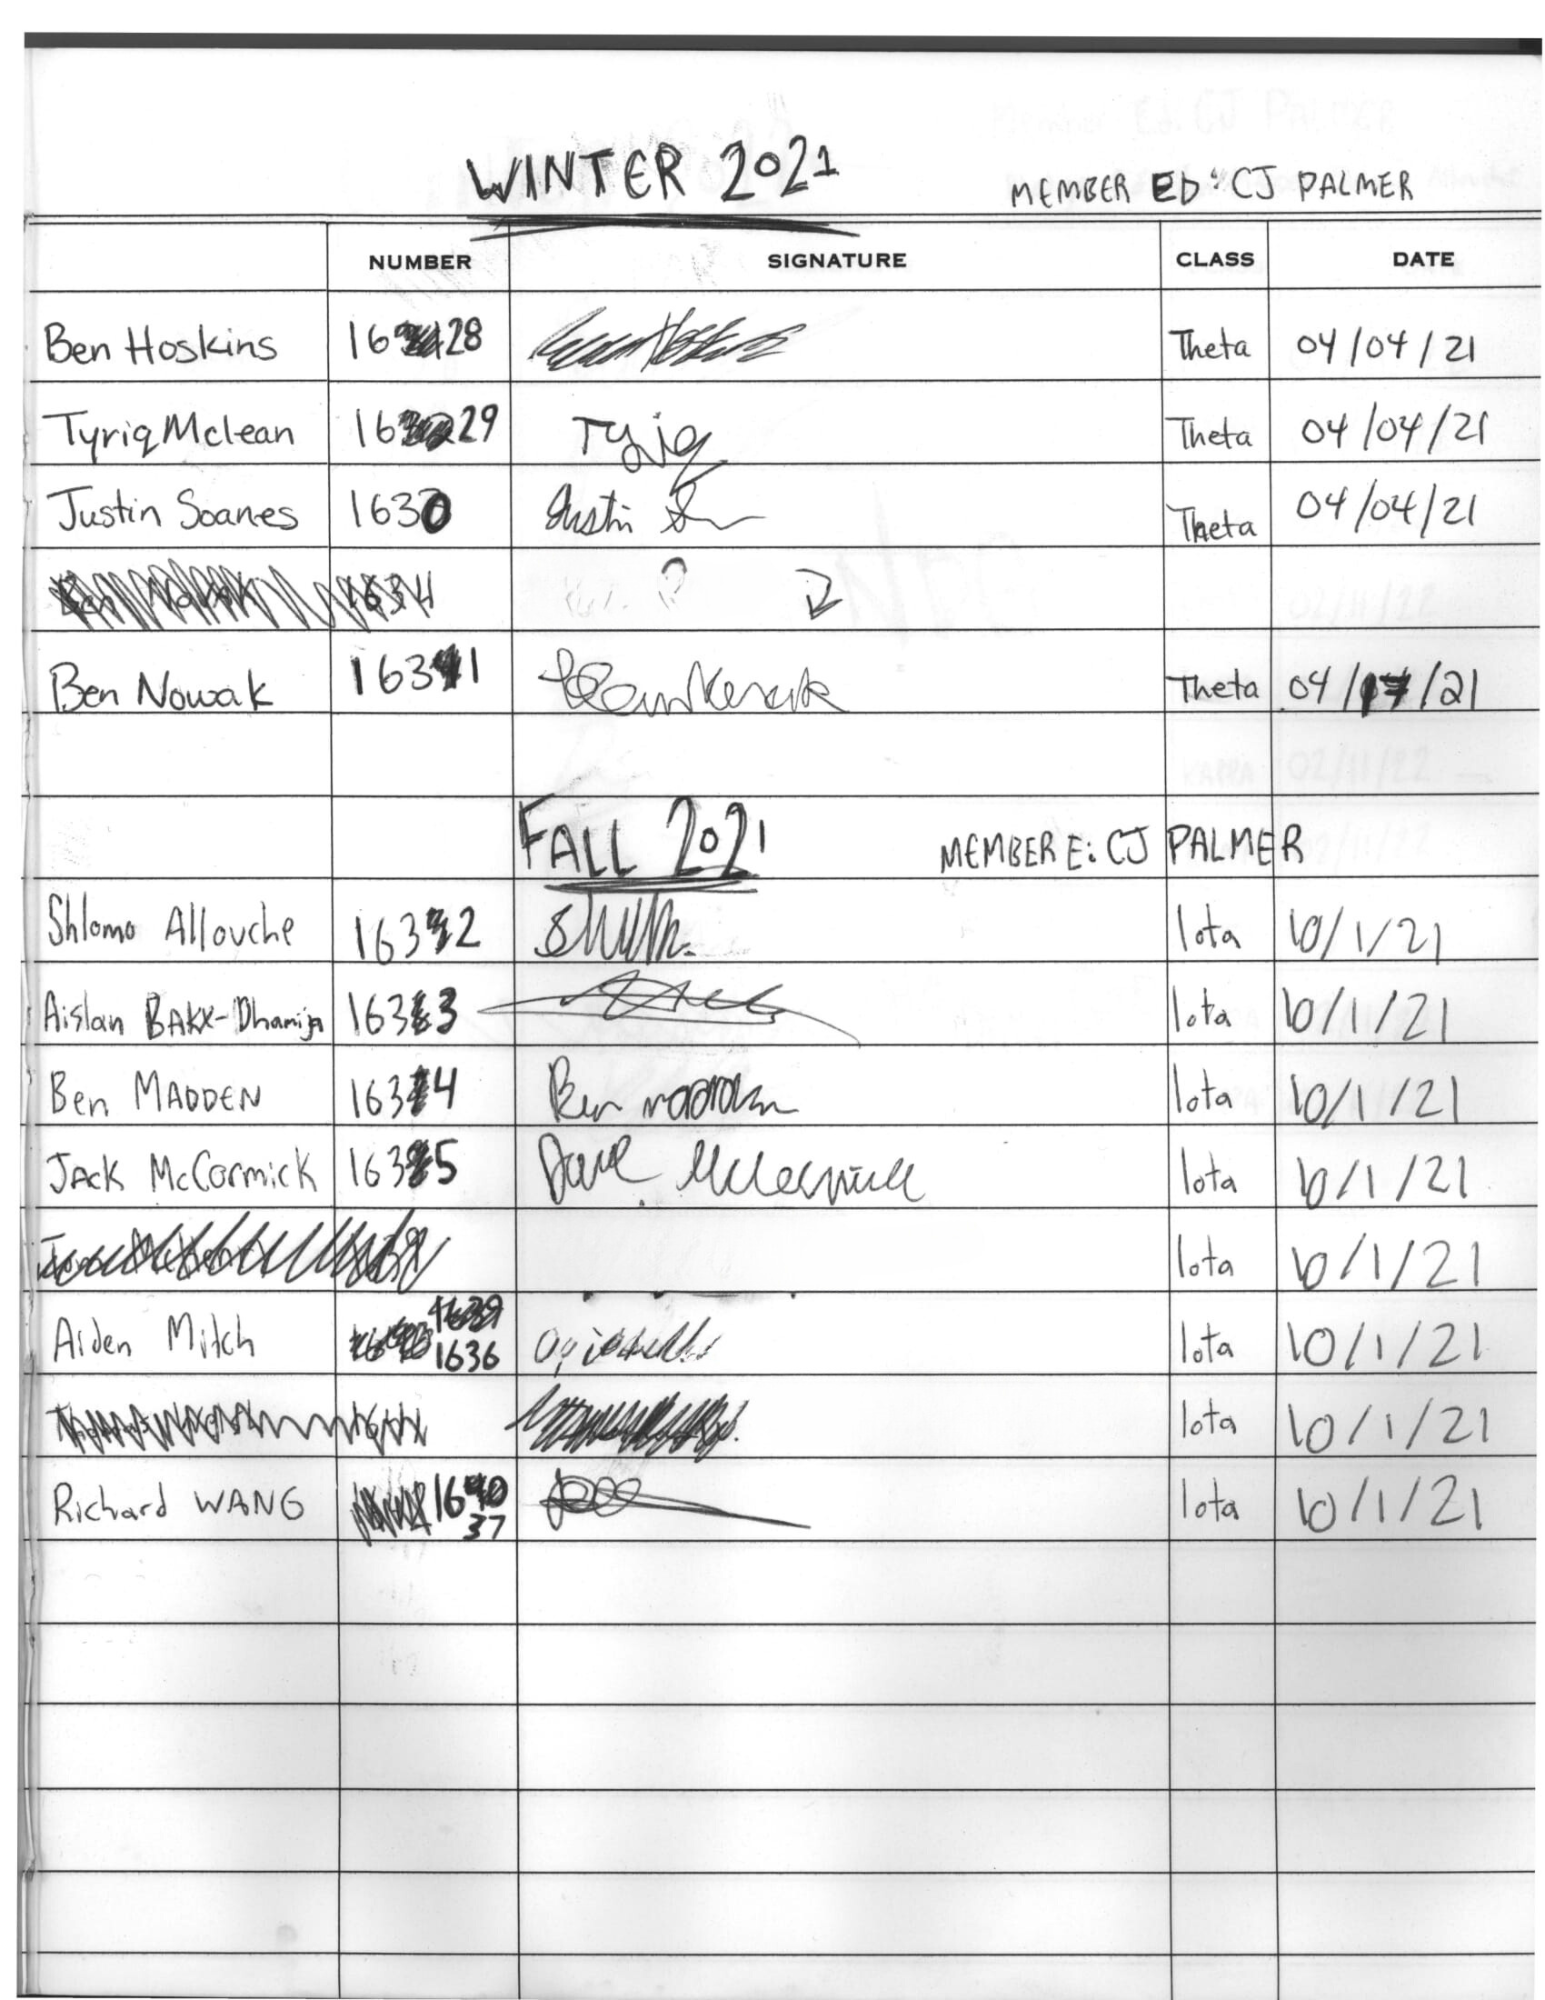 WINTER 2021
MEMBER ED: CJ PALMER
NUMBER SIGNATURE CLASS DATE
Ben Hoskins 1628 Theta 04/04/21
Tyriq Mclean 1629 Tyriq Theta 04/04/21
Justin Soanes 1630 Justin Theta 04/04/21
Ben Nowak 1634
Ben Nowak 1631 Theta 04/17/21
FALL 2021
MEMBER E: CJ PALMER
Shlomo Allouche 1632 Iota 10/1/21
Aislan BAKX-Dhamija 1633 Iota 10/1/21
Ben MADDEN 1634 Ben madden Iota 10/1/21
JACK McCormick 1635 Iota 10/1/21
Iota 10/1/21
Aiden Mitch 1639 1636 Iota 10/1/21
Iota 10/1/21
Richard WANG 1640 37 Iota 10/1/21